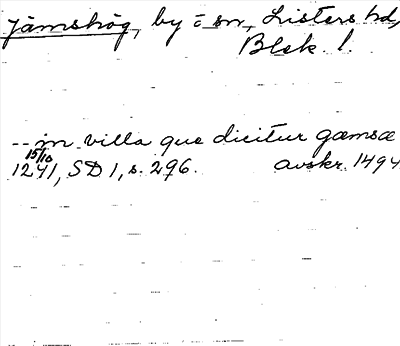 Jämshög, by o sn, Listers hd,
Blek. l.
-- in villa que dicitur gæmsæ
15/10
1241, SD 1, s. 296. avskr. 1494